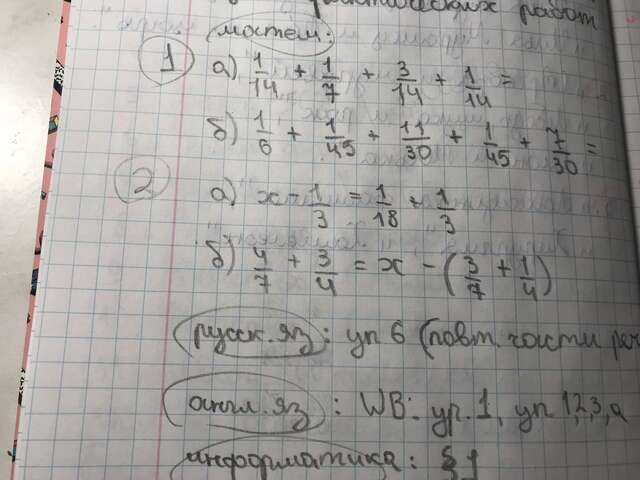 практических работ
матем:
1 а) 1/14 + 1/7 + 3/14 + 1/14 =
б) 1/6 + 1/45 + 11/30 + 1/45 + 7/30 =
2 а) x - 1/3 = 1/18 + 1/3
б) 4/7 + 3/4 = x - (3/7 + 1/4)
русск. яз: уп 6 (повт. части реч
англ. яз: WB: ур. 1, уп 1,2,3, а
информатика: § 1